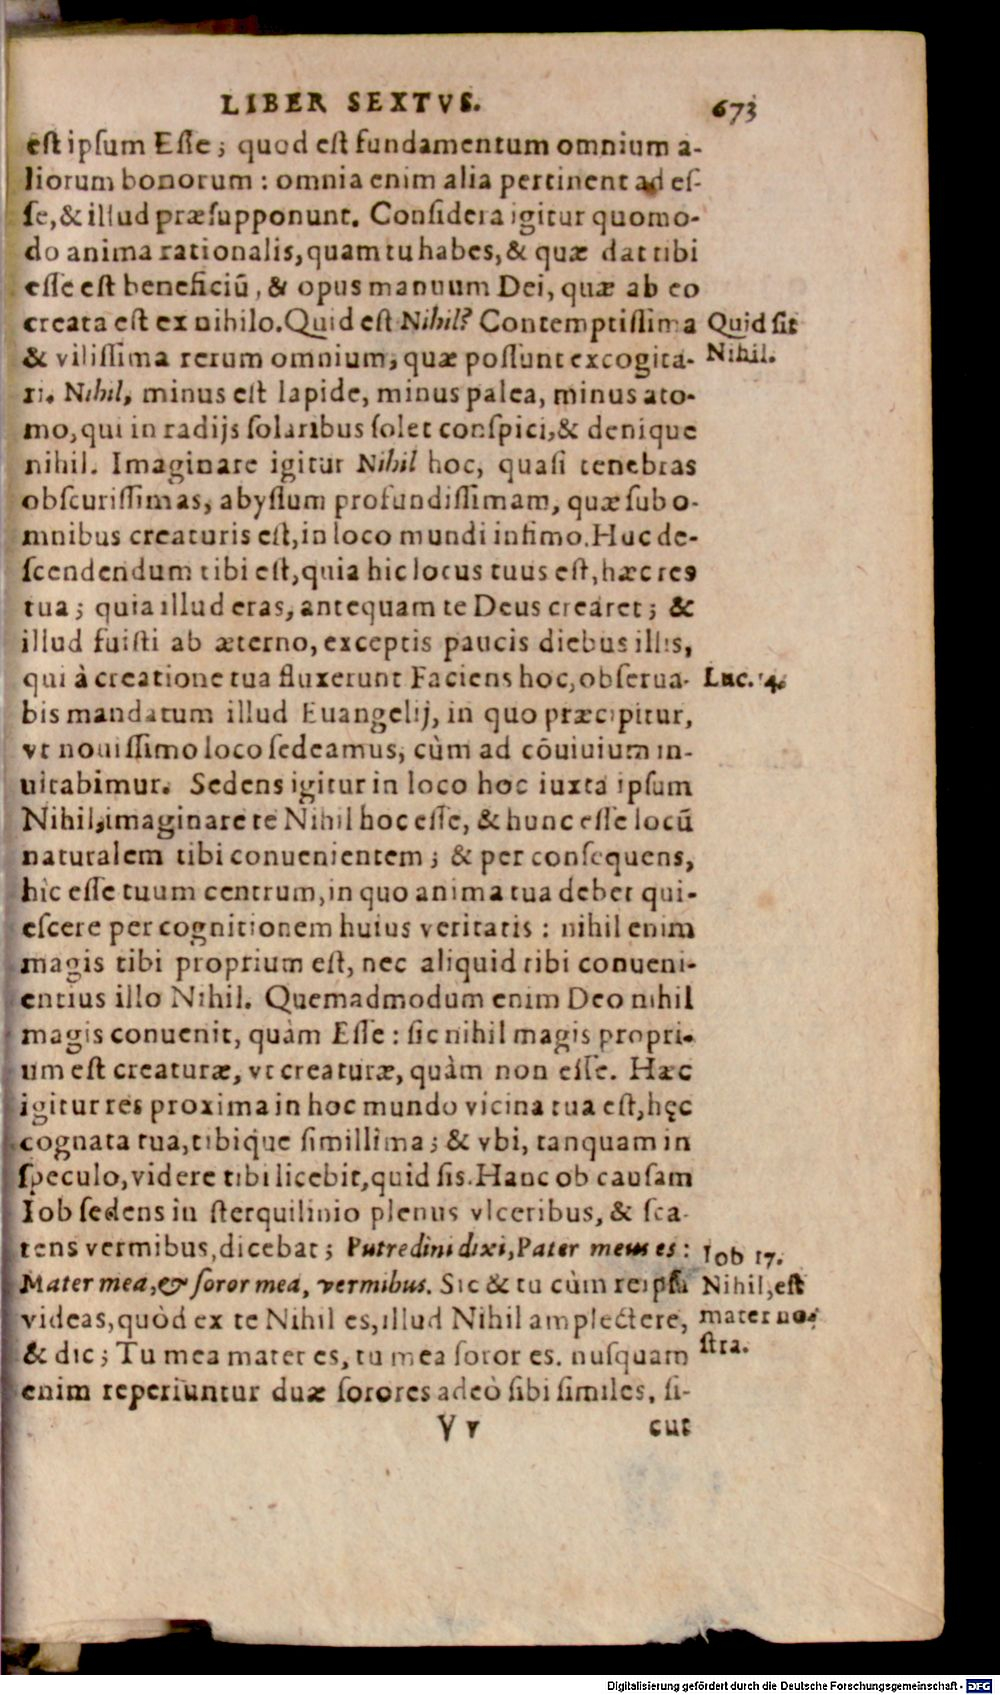 LIBER SEXTVS. 673
eſt ipſum Eſſe; quod eſt fundamentum omnium a-
liorum bonorum: omnia enim alia pertinent ad eſ-
ſe, & illud præſupponunt. Conſidera igitur quomo-
do anima rationalis, quam tu habes, & quæ dat tibi
eſſe eſt beneficiũ, & opus manuum Dei, quæ ab eo
creata eſt ex nihilo. Quid eſt Nihil? Contemptiſſima
Quid ſit
& viliſſima rerum omnium, quæ poſſunt excogita-
Nihil.
ri. Nihil, minus eſt lapide, minus palea, minus ato-
mo, qui in radijs ſolaribus ſolet conſpici, & denique
nihil. Imaginare igitur Nihil hoc, quaſi tenebras
obſcuriſſimas, abyſſum profundiſſimam, quæ ſub o-
mnibus creaturis eſt, in loco mundi infimo. Huc de-
ſcendendum tibi eſt, quia hic locus tuus eſt, hæc res
tua; quia illud eras, antequam te Deus crearet; &
illud fuiſti ab æterno, exceptis paucis diebus illis,
qui à creatione tua fluxerunt Faciens hoc, obſerua-
Luc. 14.
bis mandatum illud Euangelij, in quo præcipitur,
vt nouiſſimo loco ſedeamus, cùm ad cõuiuium in-
uitabimur. Sedens igitur in loco hoc iuxta ipſum
Nihil, imaginare te Nihil hoc eſſe, & hunc eſſe locũ
naturalem tibi conuenientem; & per conſequens,
hìc eſſe tuum centrum, in quo anima tua debet qui-
eſcere per cognitionem huius veritatis: nihil enim
magis tibi proprium eſt, nec aliquid tibi conueni-
entius illo Nihil. Quemadmodum enim Deo nihil
magis conuenit, quàm Eſſe: ſic nihil magis propri-
um eſt creaturæ, vt creaturæ, quàm non eſſe. Hæc
igitur res proxima in hoc mundo vicina tua eſt, hęc
cognata tua, tibique ſimillima; & vbi, tanquam in
ſpeculo, videre tibi licebit, quid ſis. Hanc ob cauſam
Iob ſedens in ſterquilinio plenus vlceribus, & ſca-
tens vermibus, dicebat; Putredini dixi, Pater meus es:
Iob 17.
Mater mea, & ſoror mea, vermibus. Sic & tu cùm reipſa
Nihil, eſt
videas, quòd ex te Nihil es, illud Nihil amplectere,
mater no-
& dic; Tu mea mater es, tu mea ſoror es. nuſquam
ſtra.
enim reperiuntur duæ ſorores adeò ſibi ſimiles, ſi-
V v cut
Digitalisierung gefördert durch die Deutsche Forschungsgemeinschaft - DFG